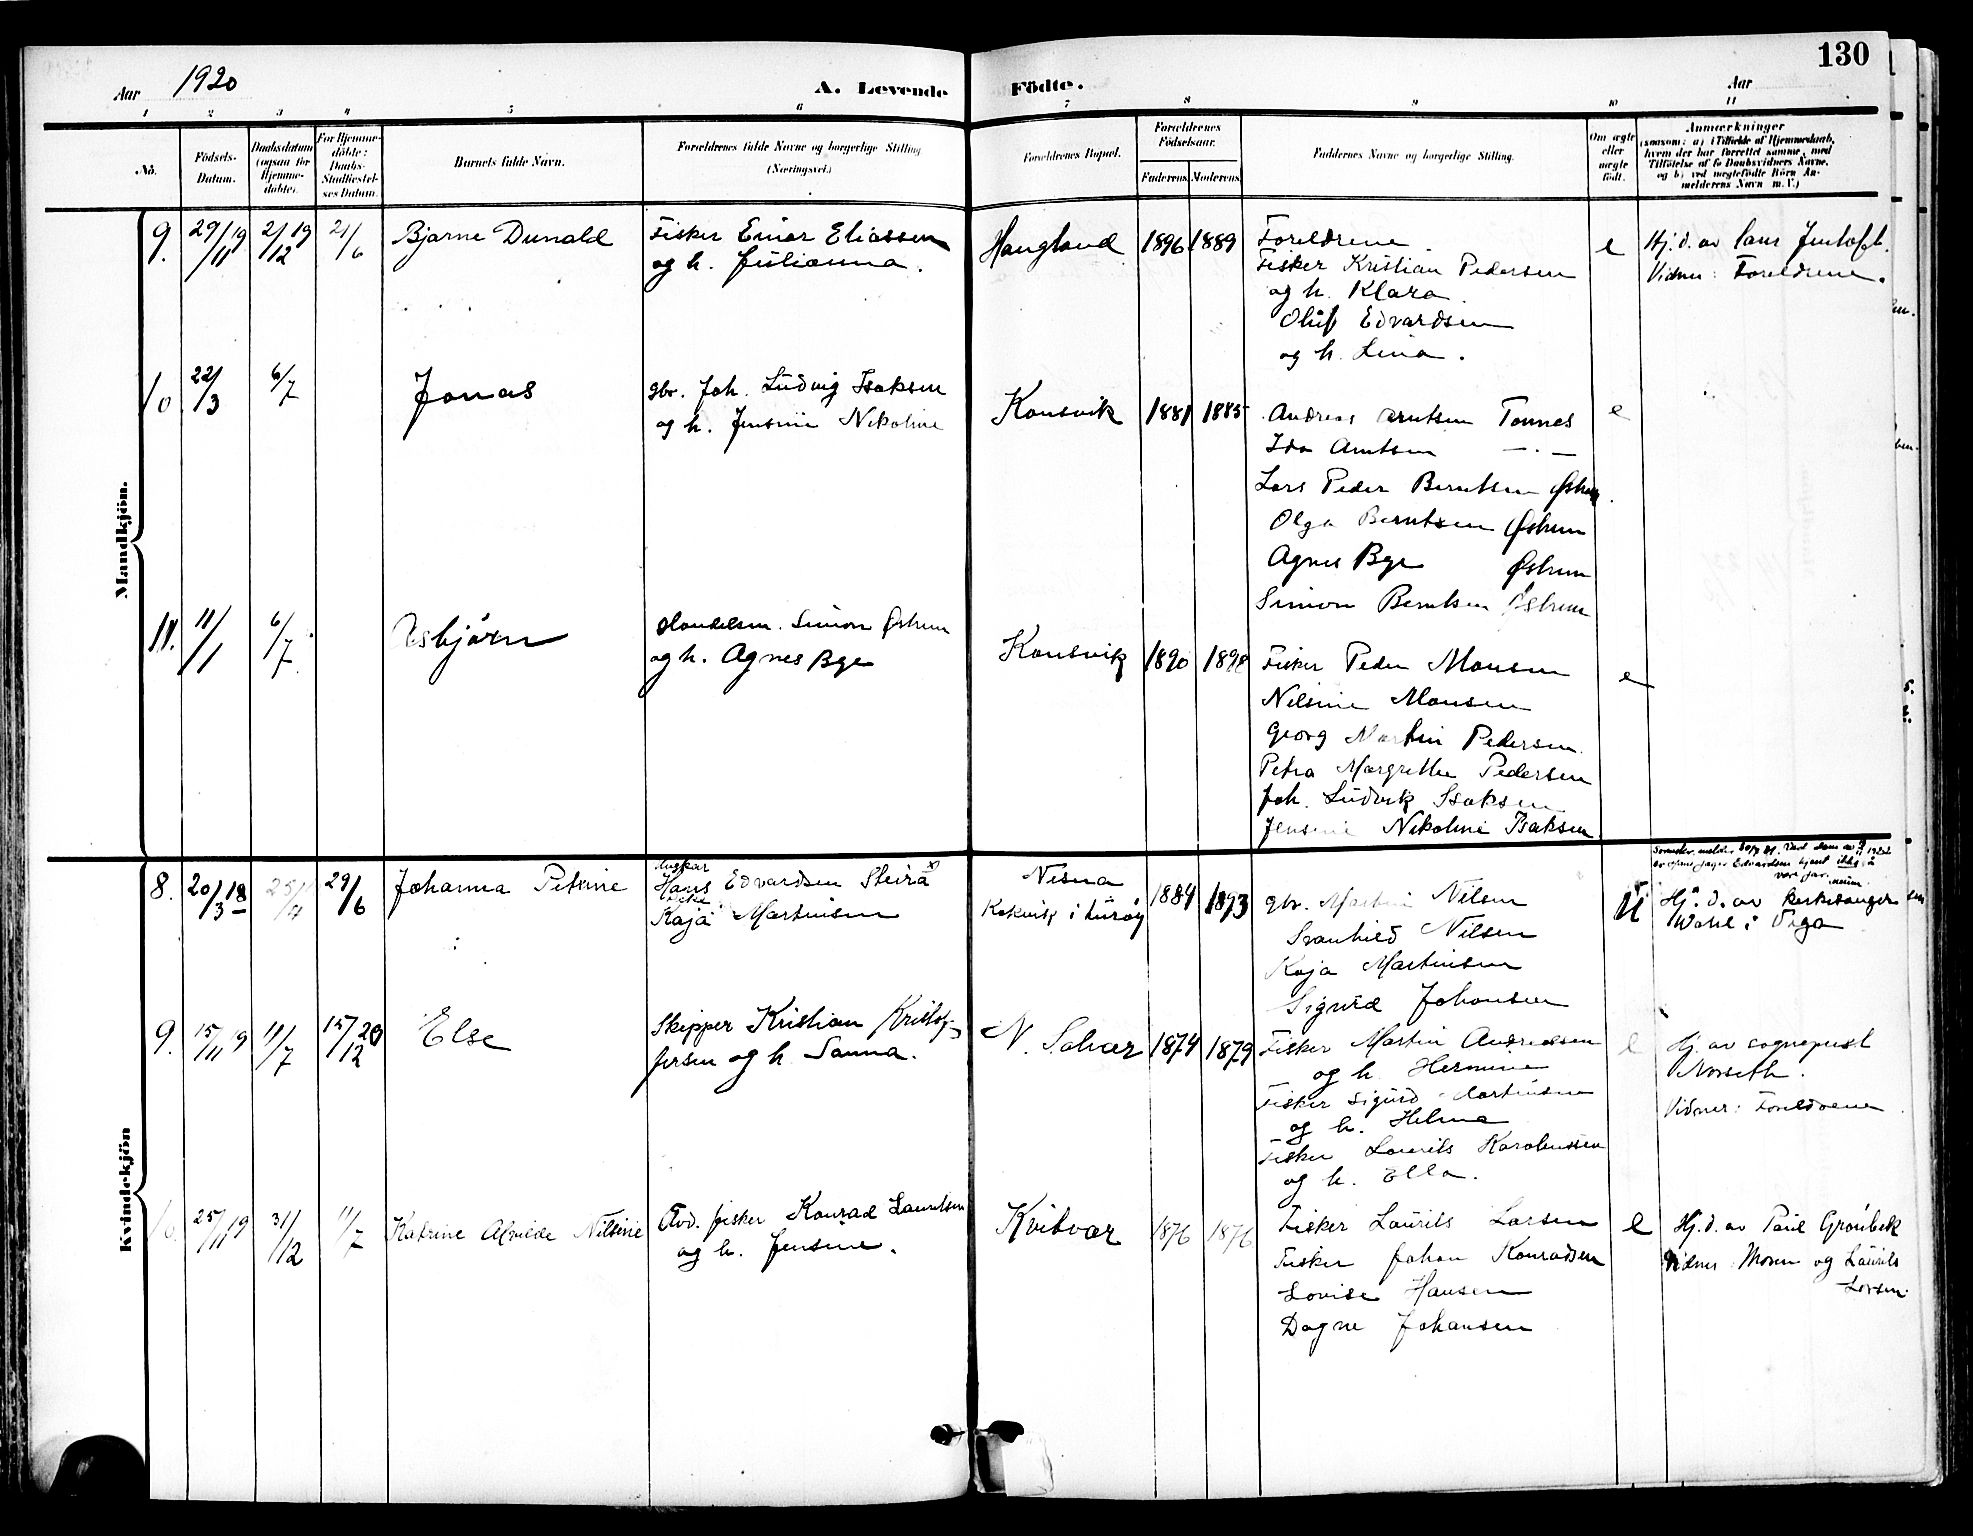 130
Aar 1920
A. Levende Födte.
Aar
1 2 3 4 5 6 7 8 9 10 11
No.
Födsels-Datum.
Daabsdatum (ogsaa for Hjemme-döbte).
For Hjemme-döbte: Daabs-Stadfæstel-ses Datum.
Barnets fulde Navn.
Forældrenes fulde Navne og borgerlige Stilling (Næringsvei.)
Forældrenes Bopæl.
Forældrenes Födselsaar.
Faderens. Moderens.
Faddernes Navne og borgerlige Stilling.
Om ægte eller uægte födt.
Anmærkninger
(saasom: a) i Tilfælde af Hjemmedaab,
hvem der har forrettet samme, med
Tilföielse af to Daabsvidners Navne,
og b) ved uægtefödte Börn An-
melderens Navn m. V.)
Mandkjön.
9. 29/11 19 2/12 19 21/6 Bjarne Dunald
Fisker Einar Eliassen
og h. Julianna.
Haugland 1896 1889
Foreldrene.
Fisker Kristian Pedersen
og h. Klara.
Oluf Edvardsen
og h. Lina.
e
Hj. d. av Lars Jentoft.
Vidner: Foreldrene.
10 22/3 6/7 Jonas
gbr. Joh. Ludvig Isaksen
og h. Jensine Nikoline
Konsvik 1881 1885
Andreas Arntsen Tonnes
Ida Arntsen — . —
Lars Peder Berntsen
Olga Berntsen Østrem
Agnes Bye Østrem
Simon Berntsen Østrem
e
11. 11/1 6/7 Asbjørn
Handelsm. Simon Østrem
og h. Agnes Bye
Konsvik 1890 1898
Fisker Peder Monsen
Nilsine Monsen
Georg Martin Pedersen.
Petra Margrethe Pedersen
Joh. Ludvik Isaksen
Jensine Nikoline Isaksen
e
Kvindekjön
8. 20/3 18 25/4 29/6 Johanna Petrine
Ungkar
Hans Edvardsen Steirå x
Pike
Kaja Martinsen
Nesna
Kokvik i Lurøy
1884 1893
gbr. Martin Nilsen
Svanhild Nilsen
Kaja Martinsen
Sigurd Johansen
U
Hj. d. av kirkesanger
Wahl i Vega
9. 15/11 19 11/7 15/12 20 Else
Skipper Kristian Kristof-
fersen og h. Sanna.
N. Solvær 1874 1879
Fisker Martin Andreasen
og h. Hermine
Fisker Sigurd Martinsen
og h. Helma
Fisker Laurits Karoliussen
og h. Ella.
e
Hj. av sogneprest
Norseth.
Vidner: Foreldrene
10. 25/11 19 31/12 11/7 Katrine Alvilde Nilsine
Avd. fisker Konrad Lauritsen
og h. Jensine.
Kvitvær 1876 1876
Fisker Laurits Larsen
Fisker Johan Konradsen
Lovise Hansen
Dagne Johansen
e
Hj. d. av Paul Grønbek
Vidner: Moren og Laurits
Larsen.